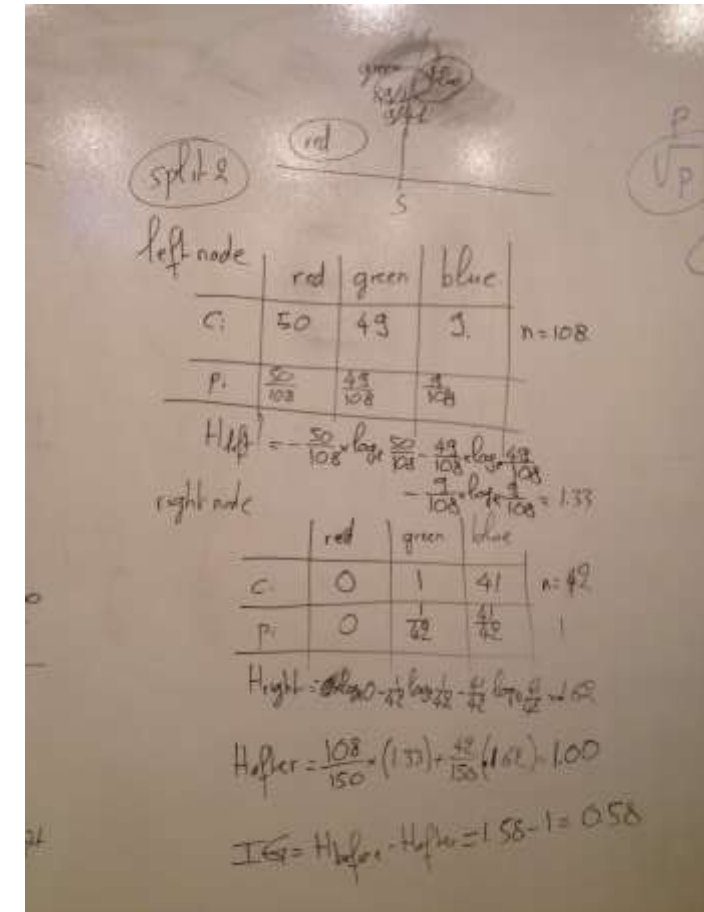 green blue
red
split 2
S
P
√P
left node
red green blue
Ci 50 49 9. n=108
Pi 50/108 49/108 9/108
H left = - 50/108 * log₂ 50/108 - 49/108 * log₂ 49/108
- 9/108 * log₂ 9/108 = 1.33
right node
red green blue
Ci 0 1 41 n=42
Pi 0 1/42 41/42 1
H right = 0 log₂ 0 - 1/42 log₂ 1/42 - 41/42 log₂ 41/42
H after = 108/150 * (1.33) + 42/150 = 1.00
IG = H before - H after = 1.58 - 1 = 0.58